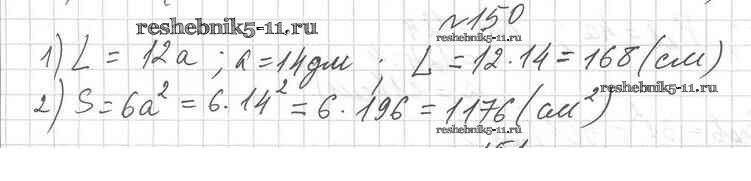 №150
reshebnik5-11.ru
1) L = 12a ; a = 14дм ; L = 12·14 = 168 (см)
reshebnik5-11.ru
2) S = 6a² = 6·14² = 6·196 = 1176 (см²)
reshebnik5-11.ru